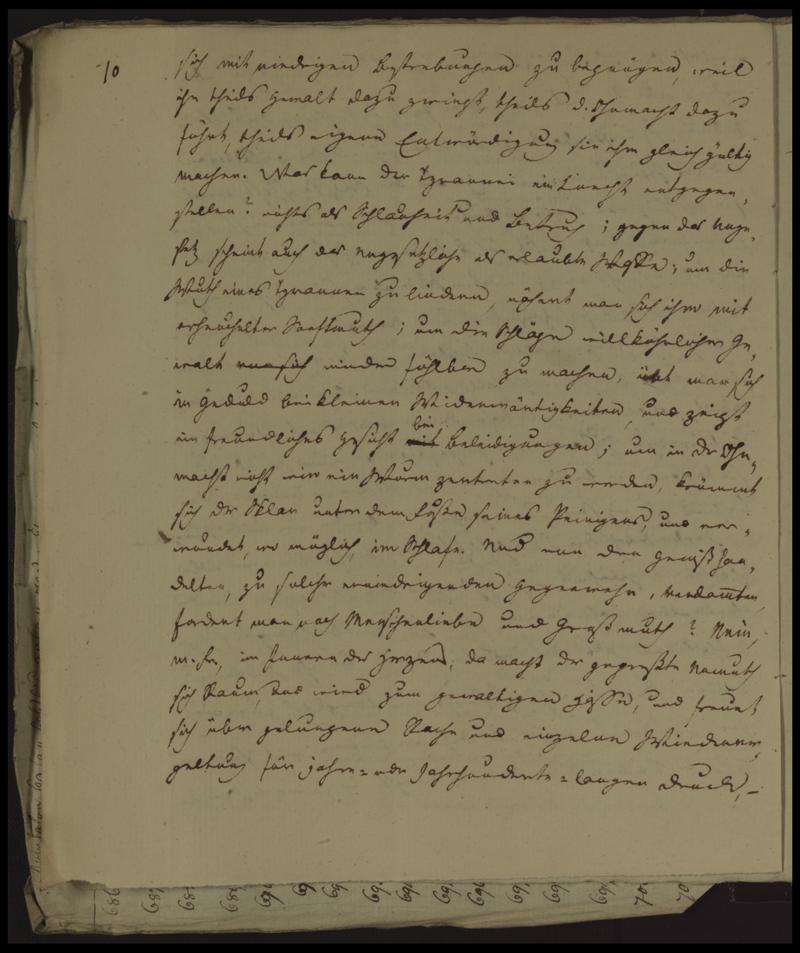 10
sich mit niedrigen Bestrebungen zu begnügen, weil
ihn theils Gewalt dazu zwingt, theils d. Ohnmacht dazu
führt, theils eigene Entwürdigung sie ihm gleichgültig
machen. Was kann der Tyrannei ein Knecht entgegen„
stellen? nichts als Schlauheit und Betrug; gegen das Unge„
setz scheint auch das ungesetzliche als erlaubte Waffe; um die
Wuth eines Tyrannen zu lindern, nähert man sich ihm mit
erheuchelter Sanftmuth; um die Schläge willkührlicher Ge„
walt minder fühlbar zu machen, übt man sich
in Geduld bei kleinen Widerwärtigkeiten, und zeigt
ein freundliches Gesicht mit bei Beleidigungen; um in der Ohn„
macht nicht wie ein Wurm zertreten zu werden, krümmt
sich der Sklav unter dem Fuße seines Peinigers, und er„
mordet, wo möglich, im Schlafe. Und von den gemißhan„
delten, zu solcher erniedrigenden Gegenwehr, verdammten,
fordert man noch Menschenliebe und Großmuth? Nein,
m. Hr., im Innern des Herzens, da macht der gepreßte Unmuth
sich Raum, und wird zum gewaltigen Hasse, und freuet
sich über gelungene Rache und einzelne Wiederver„
geltung für Jahre- oder Jahrhunderte-langen Druck, –
686